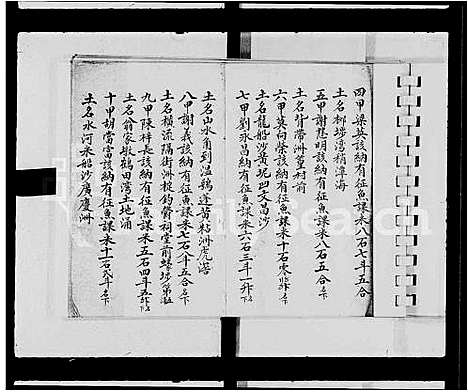 四甲梁英該納有征魚課米八石七斗五合
土名郁墦湾稍潭海
五甲謝慧明該納有征魚課米八石五合
土名背帶洲篁村前
六甲莫向榮該納有征魚課米十石
土名龍船沙黄坭凹文昌沙
七甲劉永昌納有征魚課米六石三斗一升
土名山水角到溫鵝逢黄粘洲虎滘
八甲謝義該納有征魚課米七石八斗五合
土名横流隔街洲捉釣膋祠堂前螺墩第溢
九甲陳梓長該納有征魚課米五石四斗五升
土名翁家墩鶴田湾土地涌
十甲胡當富該納有征魚課米十一石
土名水河米船沙廣慶洲
FamilySearch